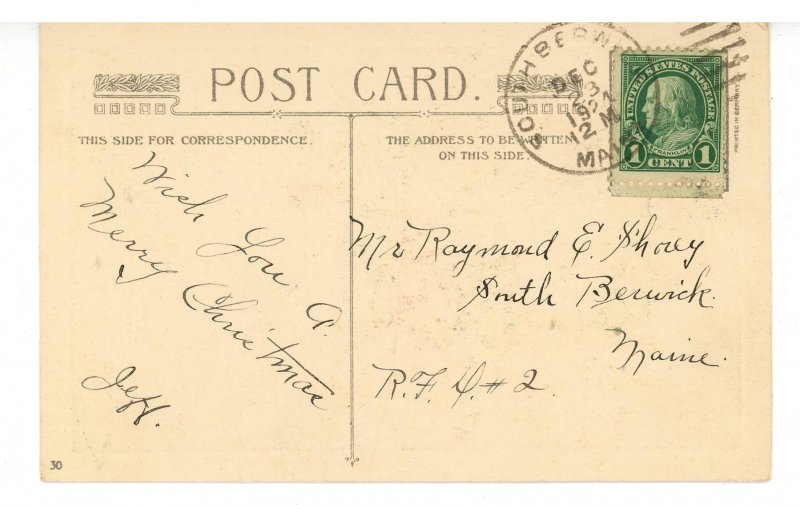 POST CARD.
THIS SIDE FOR CORRESPONDENCE.
THE ADDRESS TO BE WRITTEN
ON THIS SIDE.
SOUTH BERWI
DEC
12 M
MAINE
UNITED STATES POSTAGE
FRANKLIN
1 CENT 1
PRINTED IN GERMANY
Wish You A
Merry Christmas
Jeff.
Mr Raymond E. Shorey
South Berwick.
Maine.
R. F. D. # 2.
30